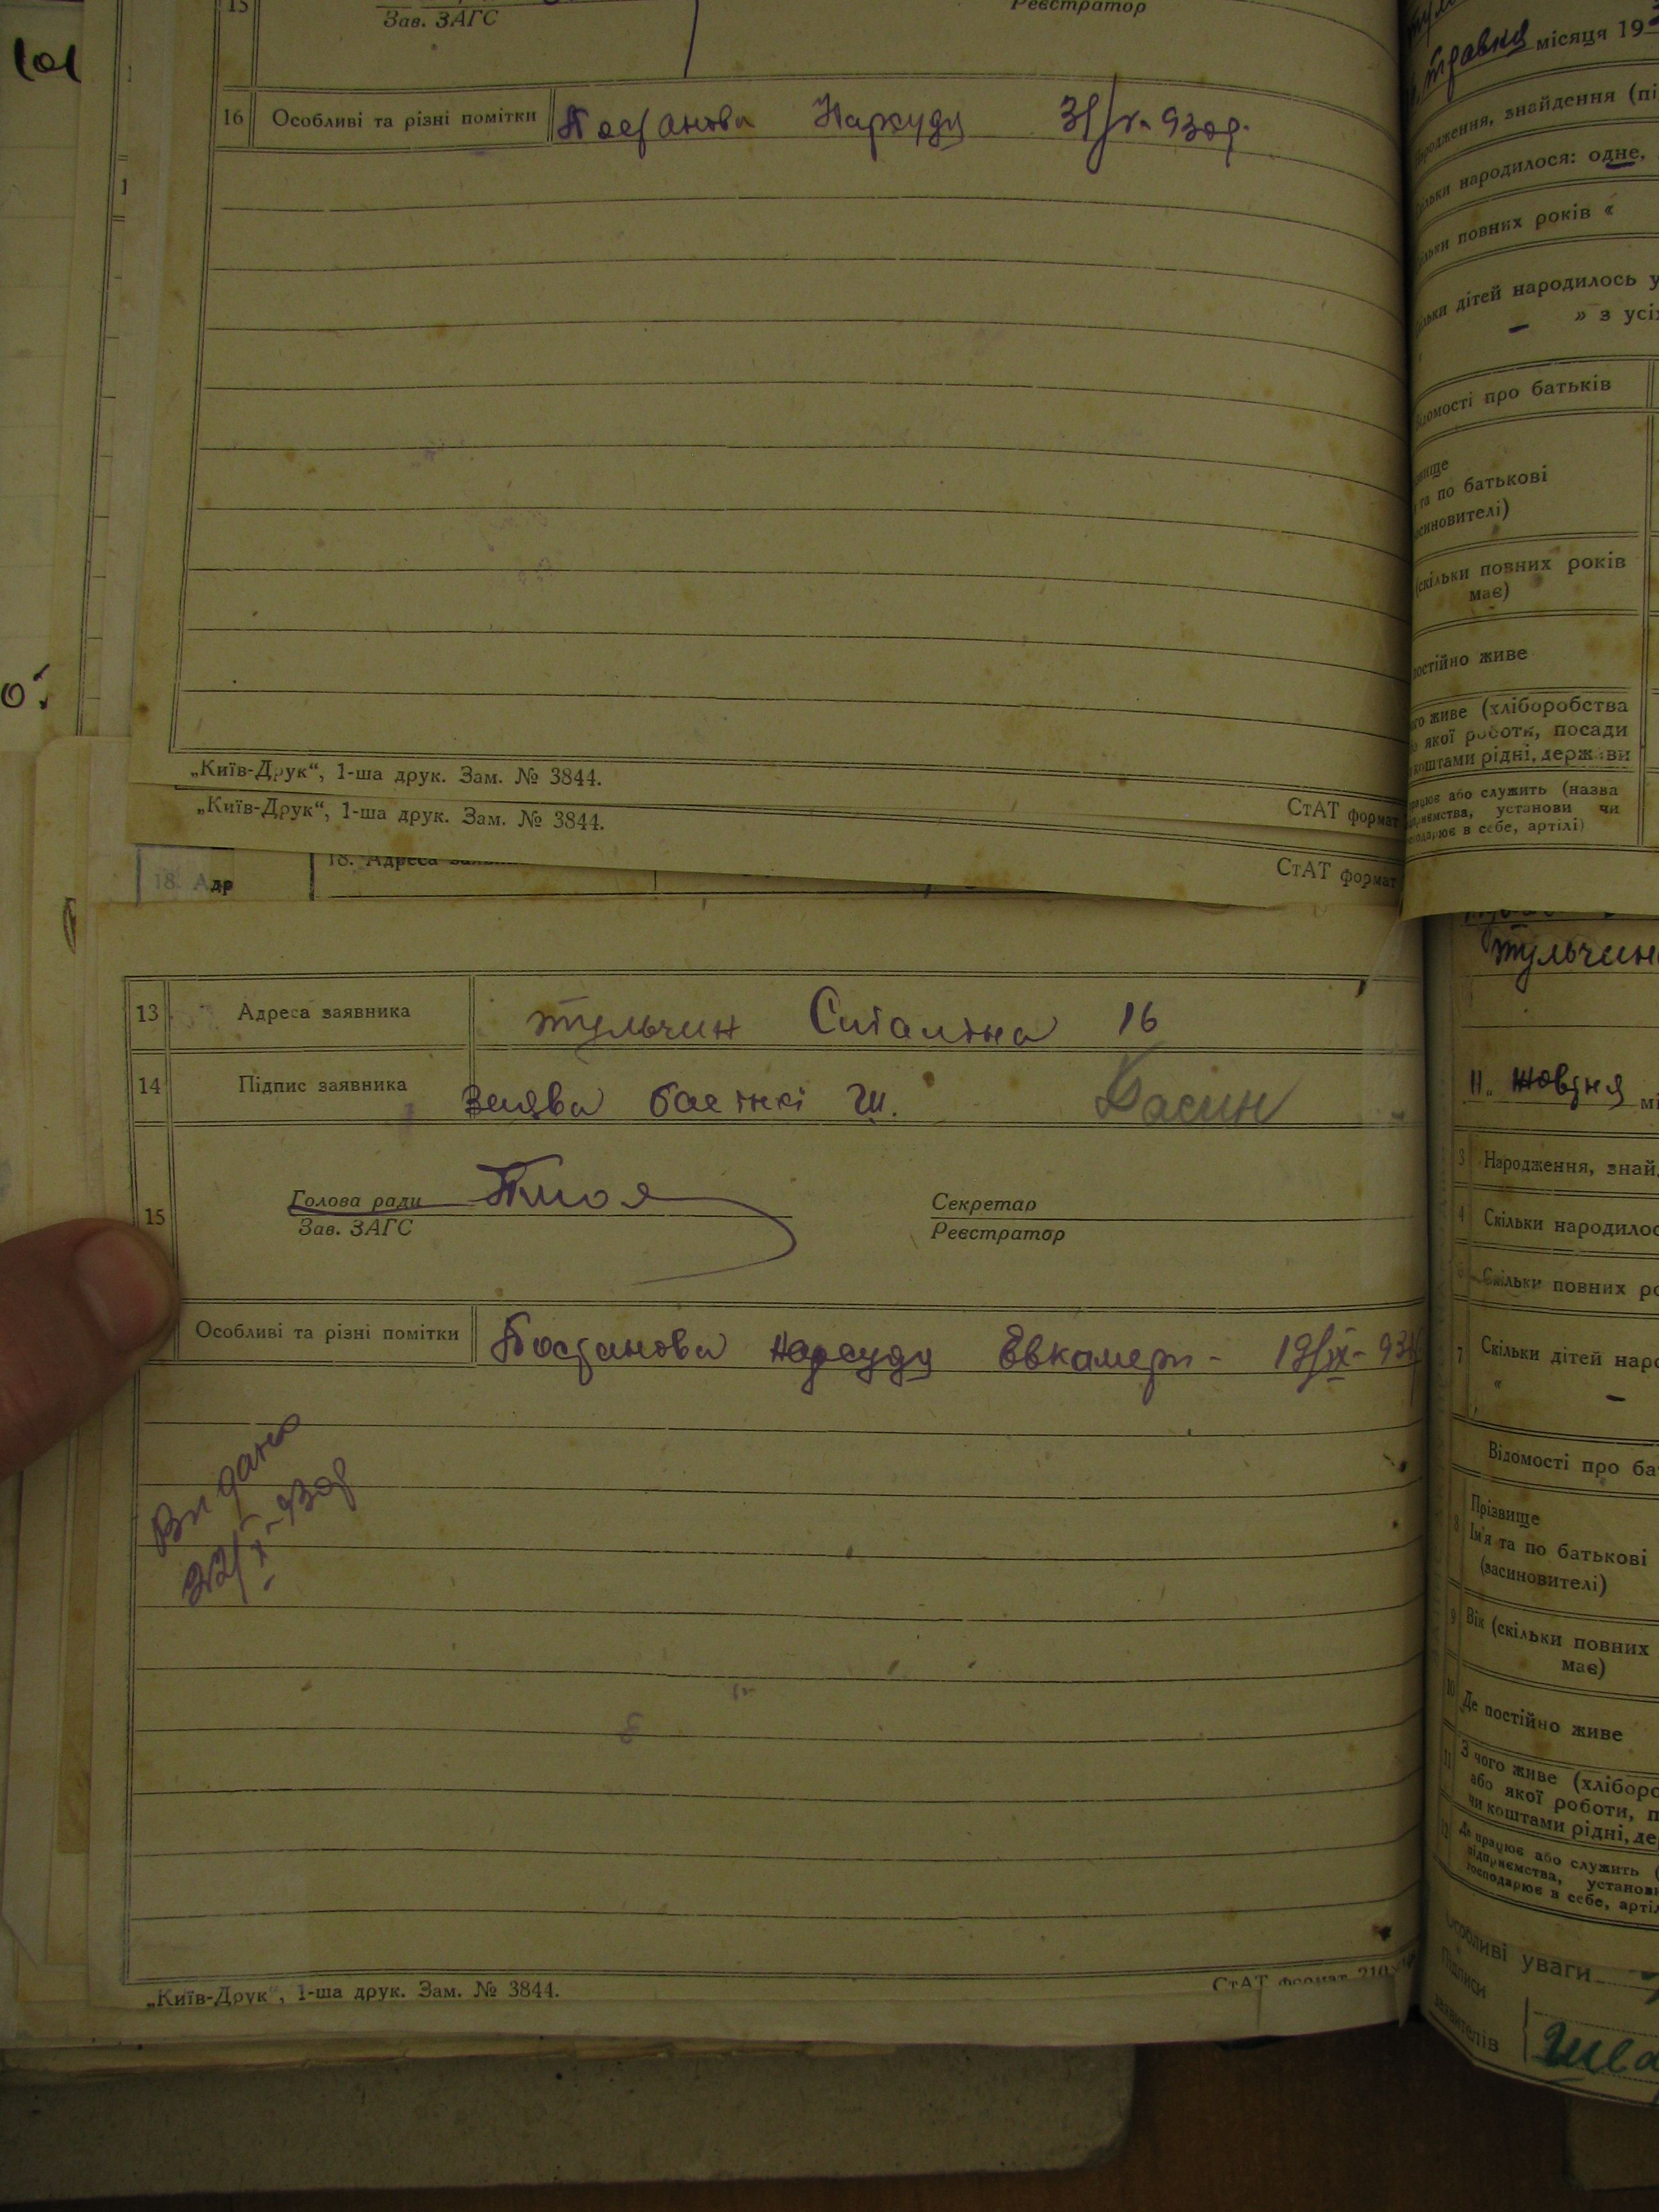 15
Зав. ЗАГС
Реєстратор
16 Особливі та різні помітки Постанова Нарсуду 31/V-930р.
„Київ-Друк“, 1-ша друк. Зам. № 3844.
СтАТ формат
„Київ-Друк“, 1-ша друк. Зам. № 3844.
СтАТ формат
18. Адр
18. Адреса
13 Адреса заявника Тульчин Сталіна 16
14 Підпис заявника Заява
15 Голова ради
Зав. ЗАГС
Секретар
Реєстратор
Особливі та різні помітки Постанова Нарсуду 19/IX-93
Видано
22/X-930р
„Київ-Друк“, 1-ша друк. Зам. № 3844.
СтАТ формат 210
травня місяця 19
народження, знайдення (пі
народилося: одне,
повних років «
дітей народилось у
» з усіх
про батьків
та по батькові
(скільки повних років
має)
постійно живе
живе (хліборобства
якої роботи, посади
коштами рідні, держави
або служить (назва
установи чи
в себе, артілі)
Тульчин
11. жовтня мі
3 Народження, знай
4 Скільки народилос
Скільки повних ро
7 Скільки дітей наро
«
Відомості про ба
8 Прізвище
Ім'я та по батькові
(засиновителі)
9 Вік (скільки повних
має)
10 Де постійно живе
11 З чого живе (хліборо
або якої роботи, п
чи коштами рідні, де
12 Де працює або служить (
підприємства, установ
господарює в себе, артіл
Особливі уваги
Підписи
заявителів